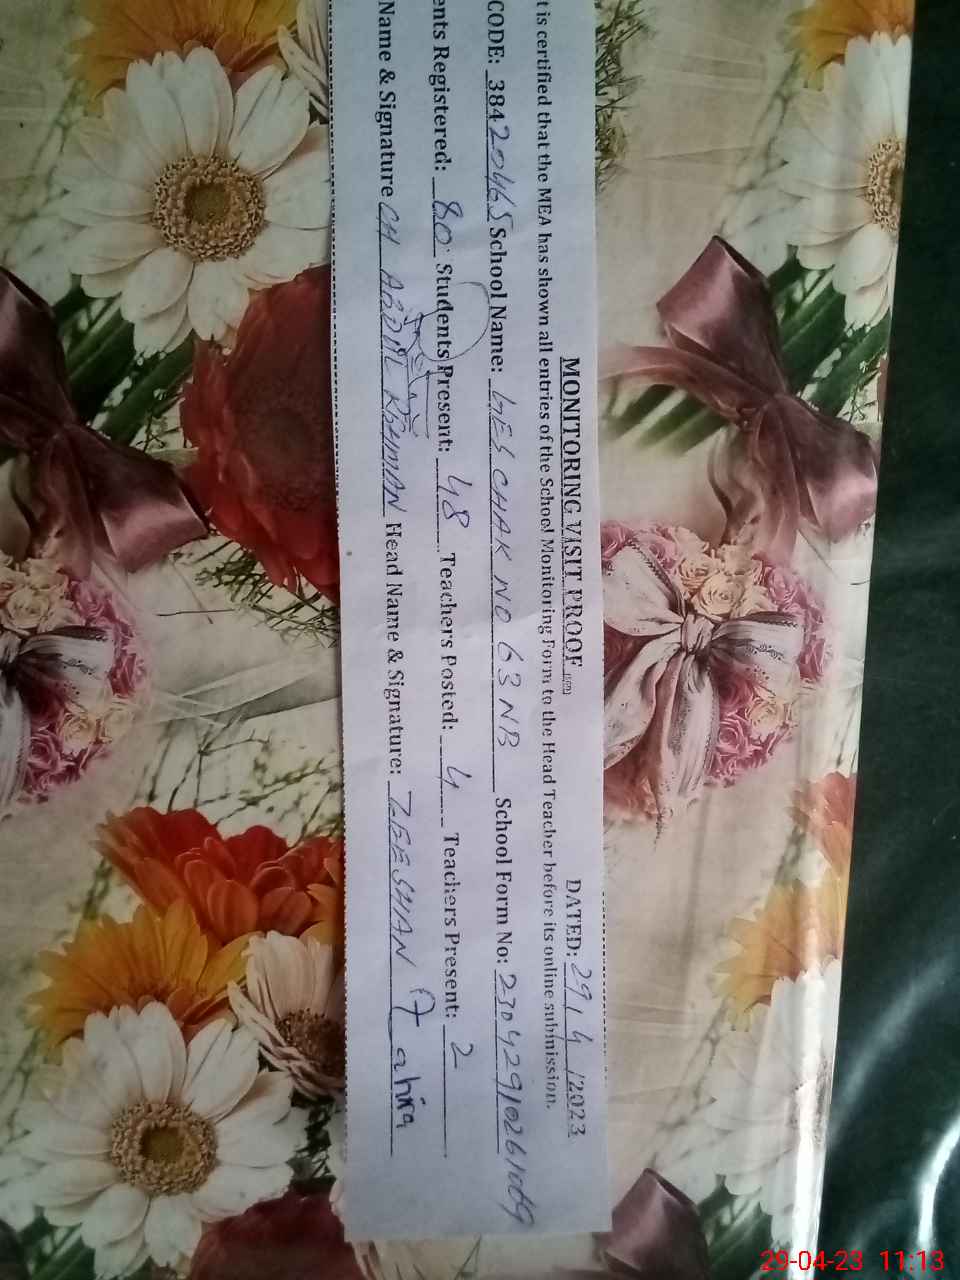 MONITORING VISIT PROOF DATED: 29/4/2023
t is certified that the MEA has shown all entries of the School Monitoring Form to the Head Teacher before its online submission.
CODE: 38420465 School Name: GES CHAK NO 63 NB School Form No: 23042910261069
ents Registered: 80 Students Present: 48 Teachers Posted: 4 Teachers Present: 2
Name & Signature CH ABDUL REHMAN Head Name & Signature: ZEESHAN
29-04-23 11:13